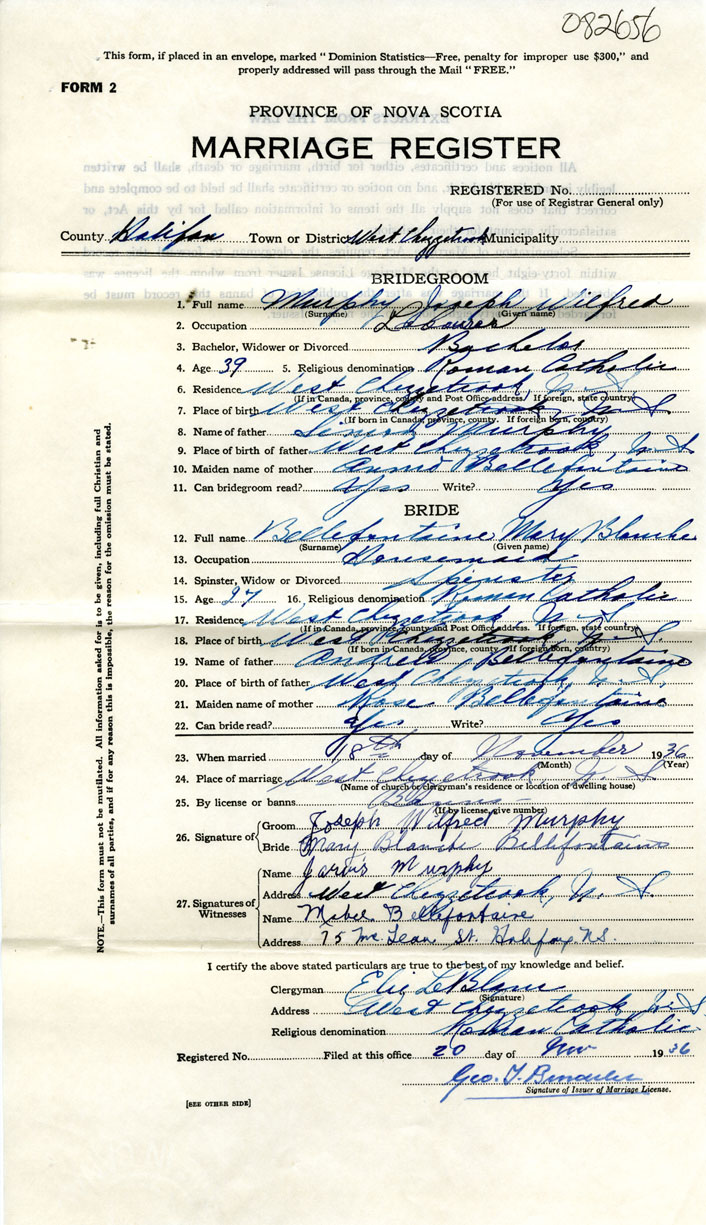 082656
This form, if placed in an envelope, marked "Dominion Statistics—Free, penalty for improper use $300," and
properly addressed will pass through the Mail "FREE."
FORM 2
PROVINCE OF NOVA SCOTIA
MARRIAGE REGISTER
REGISTERED No.
(For use of Registrar General only)
County Halifax Town or District West Chezzetcook Municipality
BRIDEGROOM
1. Full name Murphy Joseph Wilfred
(Surname) (Given name)
2. Occupation Labourer
3. Bachelor, Widower or Divorced Bachelor
4. Age 39 5. Religious denomination Roman Catholic
6. Residence West Chezzetcook N. S.
(If in Canada, province, county and Post Office address. If foreign, state country)
7. Place of birth West Chezzetcook N. S.
(If born in Canada, province, county. If foreign born, country)
8. Name of father Simon Murphy
9. Place of birth of father West Chezzetcook, N. S.
10. Maiden name of mother Annie Bellefontaine
11. Can bridegroom read? Yes Write? Yes
BRIDE
12. Full name Bellefontaine Mary Blanche
(Surname) (Given name)
13. Occupation Housemaid
14. Spinster, Widow or Divorced Spinster
15. Age 27 16. Religious denomination Roman Catholic
17. Residence West Chezzetcook N. S.
(If in Canada, province, county and Post Office address. If foreign, state country)
18. Place of birth West Chezzetcook N. S.
(If born in Canada, province, county. If foreign born, country)
19. Name of father Bellefontaine
20. Place of birth of father West Chezzetcook N. S.
21. Maiden name of mother Rose Bellefontaine
22. Can bride read? Yes Write? Yes
23. When married 18th day of November 1936
(Month) (Year)
24. Place of marriage West Chezzetcook N. S.
(Name of church or clergyman's residence or location of dwelling house)
25. By license or banns Banns
(If by license, give number)
26. Signature of Groom Joseph Wilfred Murphy
Bride Mary Blanche Bellefontaine
27. Signatures of Witnesses
Name Jarvis Murphy
Address West Chezzetcook, N. S.
Name Mabel Bellefontaine
Address 75 McLean St. Halifax N.S.
I certify the above stated particulars are true to the best of my knowledge and belief.
Clergyman Eloi LeBlanc
(Signature)
Address West Chezzetcook N. S.
Religious denomination Roman Catholic
Registered No. Filed at this office 20 day of Nov 1936
Geo. T.
Signature of Issuer of Marriage License.
[SEE OTHER SIDE]
NOTE.—This form must not be mutilated. All information asked for is to be given, including full Christian and
surnames of all parties, and if for any reason this is impossible, the reason for the omission must be stated.